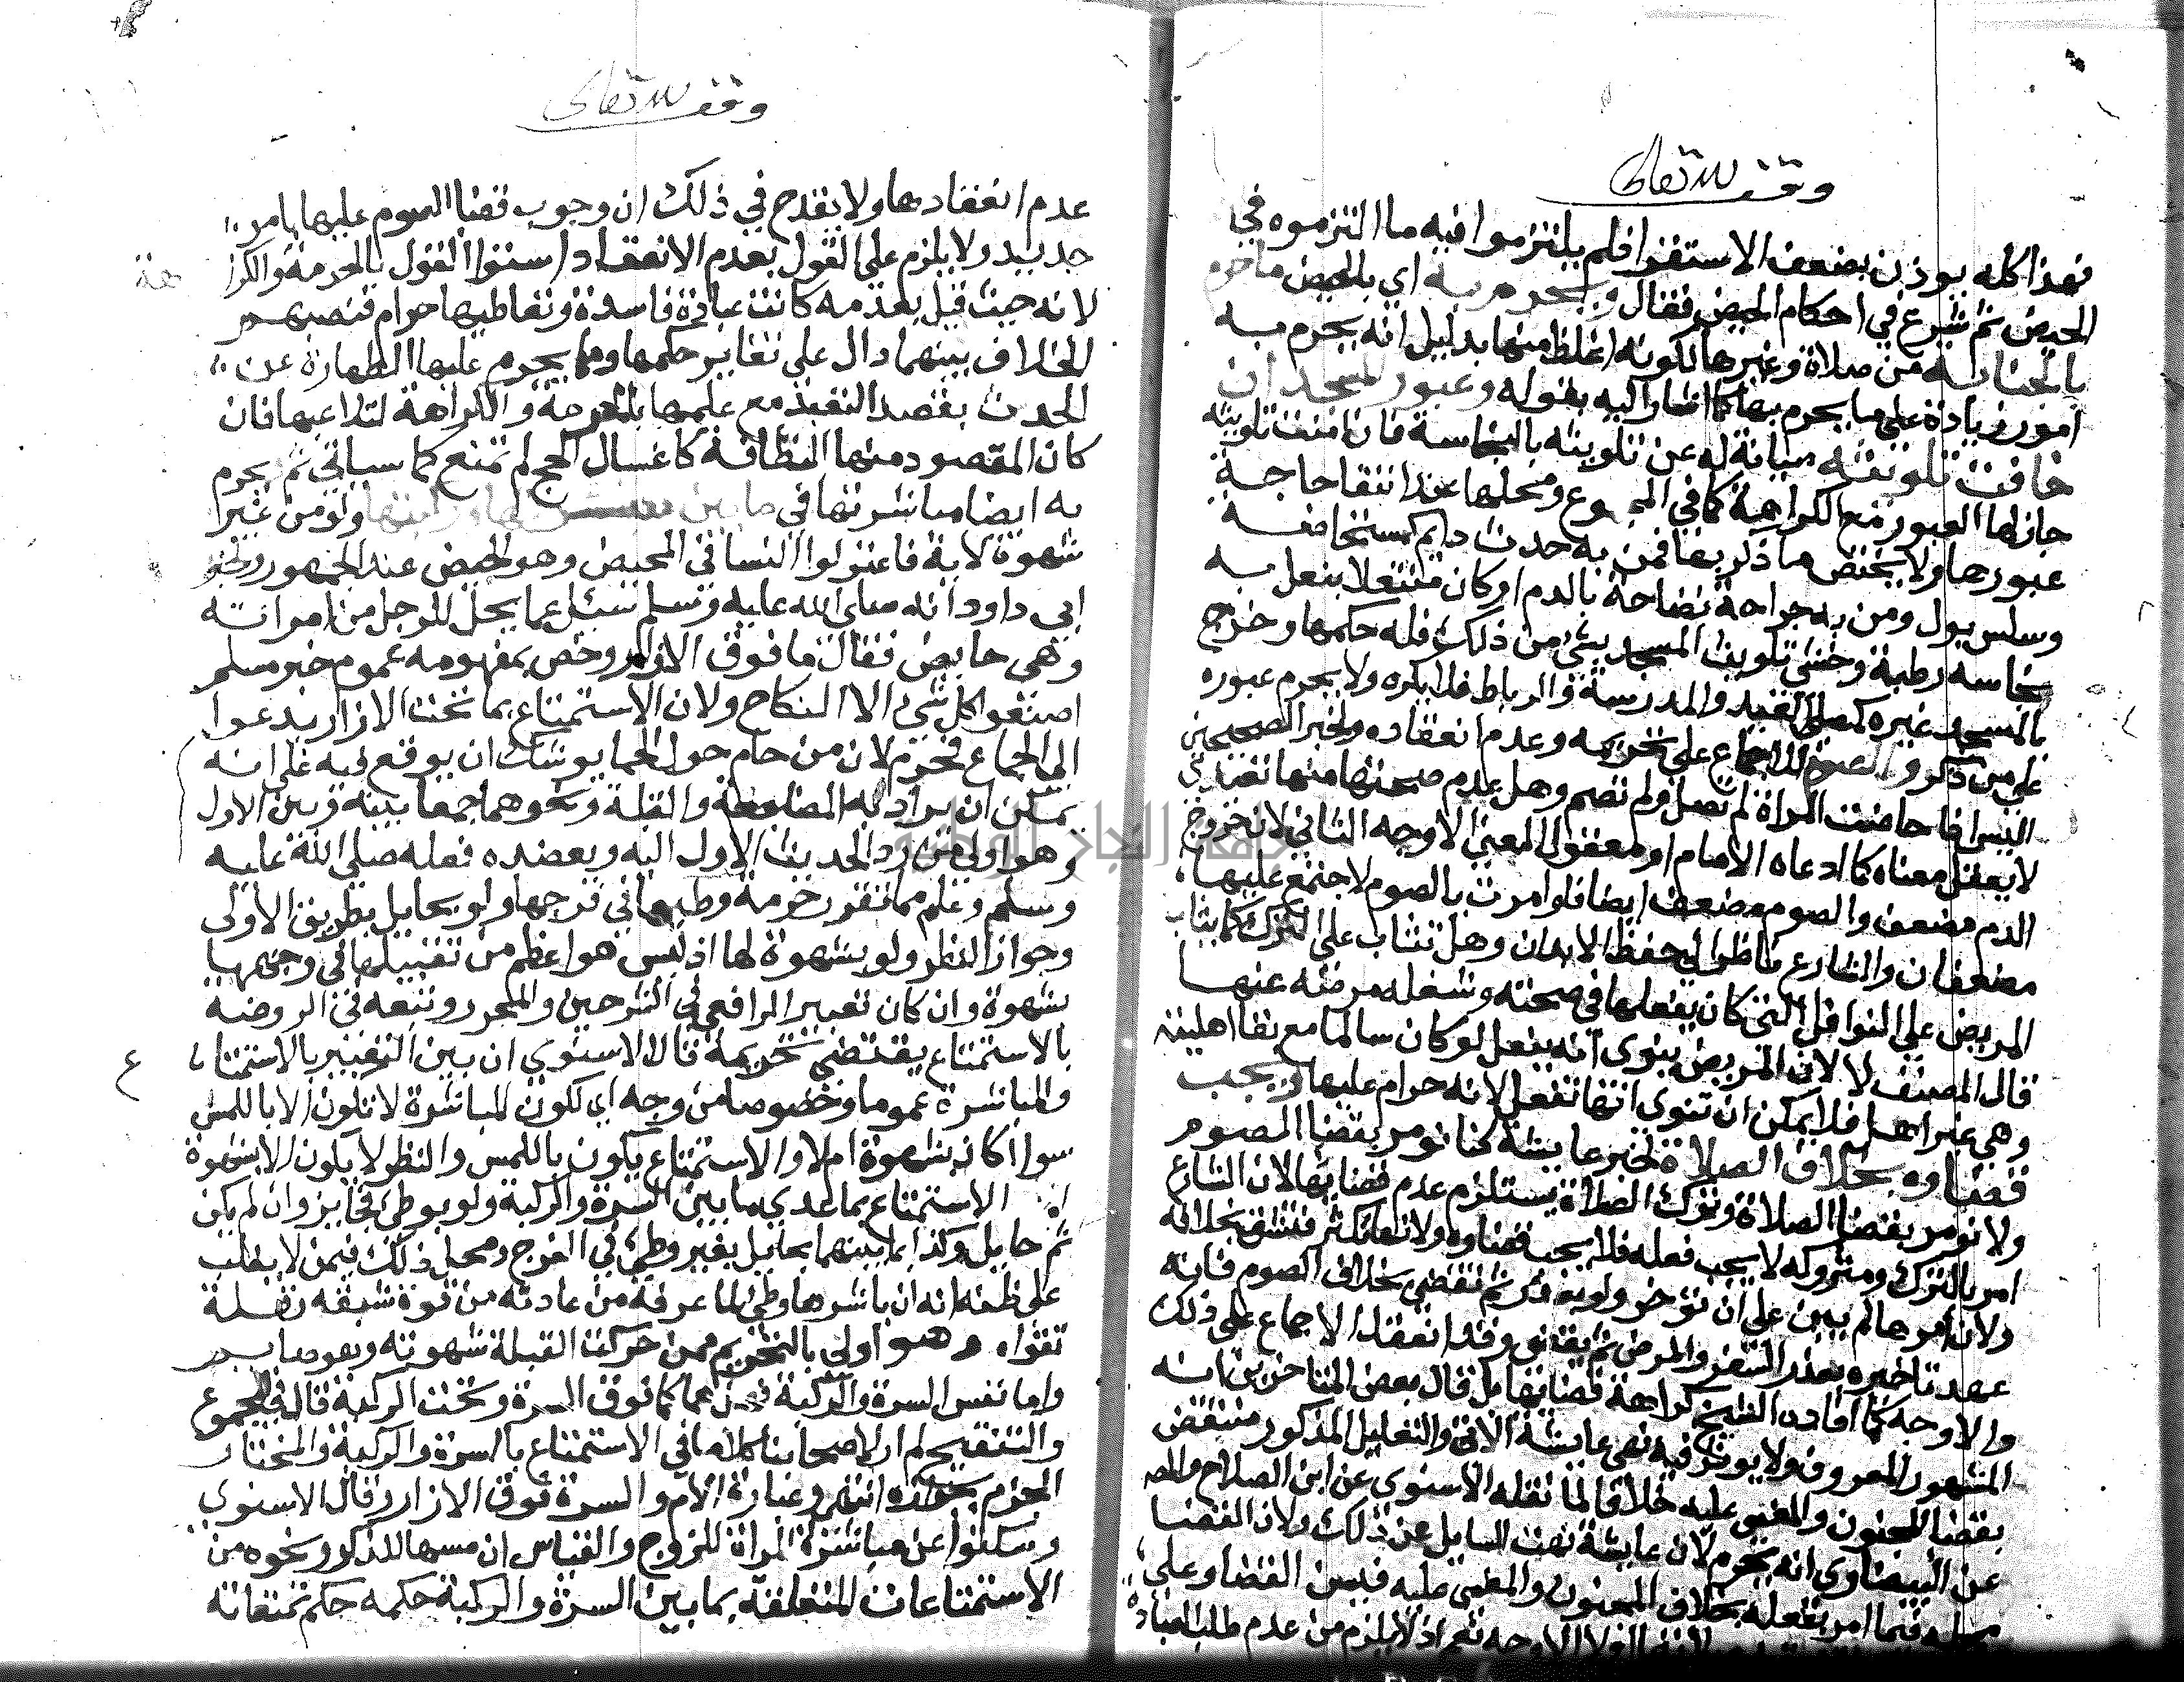 وقف لله تعالى
فهذا كله يوذن بضعف الاستقرا فلم يلتزموا فيه ما التزموه في
الحيض ثم شرع في احكام الحيض فقال ويحرم به اي بالحيض ما حرم
بالجنابه من صلاة وغيرها لكونه اغلظ منها بدليل انه يحرم به
امور زيادة على ما يحرم بها كما اشار اليه بقوله وعبور المسجد ان
خافت تلويثه صيانة له عن تلويثه بالنجاسة فان امنت تلويثه
جاز لها العبور مع الكراهة كما في المجموع ومحلها عند انتفا حاجة
عبورها ولا يختص ما ذكر بها فمن به حدث دايم كمستحاضة
وسلس بول ومن به جراحة نضاحة بالدم او كان منتعلا بنعل به
نجاسه رطبة وخشي تلويث المسجد بشي من ذلك فله حكمها وخرج
بالمسجد غيره كمصلى العيد والمدرسة والرباط فلا يكره ولا يحرم عبوره
على من ذكر والصوم للاجماع على تحريمه وعدم انعقاده ولخبر الصحيحين
اليس اذا حاضت المراة لم تصل ولم تصم وهل عدم صحتها منها تعبدي
لا يعقل معناه كما ادعاه الامام او معقول المعنى الاوجه الثاني لان خروج
الدم مضعف والصوم مضعف ايضا فلو امرت بالصوم لاجتمع عليها
مضعفان والشارع ناظر الى حفظ الابدان وهل تثاب على الترك كما يثاب
المريض على النوافل التي كان يفعلها في صحته وشغله مرضه عنها
قال المصنف لا لان المريض ينوي انه يفعل لو كان سالما مع بقا اهليته
وهي غير اهل فلا يمكن ان تنوي انها تفعل لانه حرام عليها ويجب
قضاوه بخلاف الصلاة لخبر عايشة كنا نومر بقضا الصوم
ولا نومر بقضا الصلاة وترك الصلاة يستلزم عدم قضائها لان الشارع
امر بالترك ومتروكه لا يجب فعله فلا يجب قضاوه ولانها تكثر فتشق بخلافه
ولان امرها لم يبن على ان توخر ولو بعذر ثم تقضى بخلاف الصوم فانه
عهد تاخيره بعذر السفر والمرض ثم يقضى وقد انعقد الاجماع على ذلك
والاوجه كما افاده الشيخ كراهة قضائها بل قال بعض المتاخرين انه
المشهور المعروف ولا يوثر فيه نهي عايشة الاتي والتعليل المذكور منتقض
بقضا المجنون والمغمى عليه خلافا لما نقله الاسنوي عن ابن الصلاح والمص
عن البيضاوي انه يحرم لان عايشة نهت السايل عن ذلك ولان القضا
محله فيما امر بفعله بخلاف المجنون والمغمى عليه فيسن القضا وعلى
الاوجه نعم اذ لا يلزم من عدم طلب العبادة
وقف لله تعالى
عدم انعقادها ولا يقدح في ذلك ان وجوب قضا الصوم عليها بامر
جديد ولا يلزم على القول بعدم الانعقاد استوا القول بالحرمة والكرا
هة
لانه حيث قيل بعدمه كانت عبادة فاسدة وتعاطيها حرام فنصبهم
الخلاف بينهما دال على تغاير حكمها ومما يحرم عليها الطهارة عن
الحدث بقصد التعبد مع علمها بالحرمة والكراهة لتلاعبها فان
كان المقصود منها النظافة كاغسال الحج لم تمنع كما سياتي ثم ويحرم
به ايضا مباشرتها في ما بين سرتها وركبتها ولو من غير
شهوة لاية فاعتزلوا النسا في المحيض وهو الحيض عند الجمهور ولخبر
ابي داود انه صلى الله عليه وسلم سئل عما يحل للرجل من امراته
وهي حايض فقال ما فوق الازار وخص بمفهومه عموم خبر مسلم
اصنعوا كل شي الا النكاح ولان الاستمتاع بما تحت الازار يدعوا
الى الجماع فحرم لان من حام حول الحما يوشك ان يوقع فيه على انه
يمكن ان يراد به المضاجعة والقبلة ونحوهما جمعا بينه وبين الاول
وهو اولى من رد الحديث الاول اليه ويعضده فعله صلى الله عليه
وسلم وعلم مما تقرر حرمة وطيها في فرجها ولو بحايل بطريق الاولى
وجواز النظر ولو بشهوة لها اذ ليس هو اعظم من تقبيلها في وجهها
بشهوة وان كان تعبير الرافعي في الشرحين والمحرر وتبعه في الروضة
بالاستمتاع يقتضي تحريمه قال الاسنوي ان بين التعبير بالاستمتا
ع
والمباشرة عموما وخصوصا من وجه اي لكون المباشرة لا تكون الا باللمس
سوا اكان بشهوة ام لا والاستمتاع يكون باللمس والنظر لا يكون الا بشهوة
اما الاستمتاع بما عدى ما بين السرة والركبة ولو بوطي فجايز وان لم يكن
ثم حايل وكذا بما بينهما بحايل بغير وطي في الفرج ومحل ذلك فيمن لا يغلب
على ظنه انه ان باشرها وطي لما عرفه من عادته من قوة شبقه وقلة
تقواه وهو اولى بالتحريم ممن حركت القبلة شهوته وهو صايم
واما نفس السرة والركبة فهما كما فوق السرة وتحت الركبة قال في المجموع
والتنقيح لم ار لاصحابنا كلاما في الاستمتاع بالسرة والركبة والمختار
الجزم بحله انتهى وعبارة الام والسرة فوق الازار وقال الاسنوي
وسكتوا عن مباشرة المراة للزوج والقياس ان مسها للذكر ونحوه من
الاستمتاعات المتعلقة بما بين السرة والركبة حكمه حكم تمتعاته
جامعة النجاح الوطنية